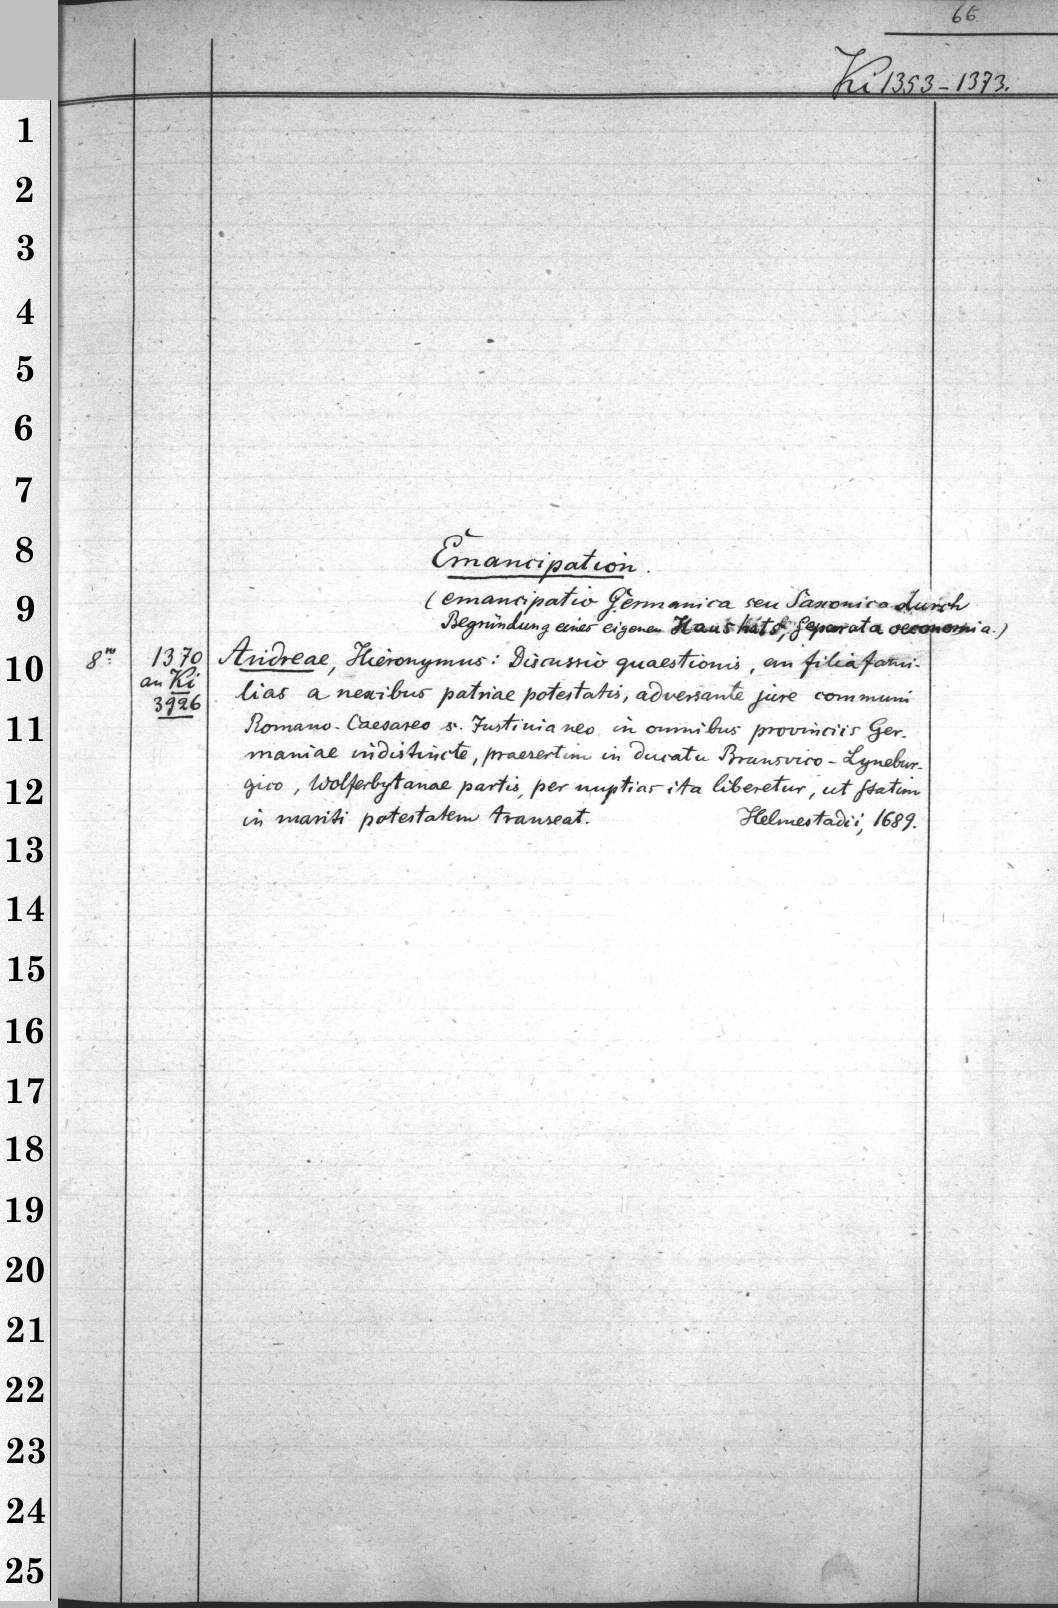 66
Ki 1353-1373.
1
2
3
4
5
6
7
8
Emancipation.
9
(emancipatio Germanica seu Saxonica durch
Begründung eines eigenen Haushalts, separata oeconomia.)
10
8ro 1370 Andreae, Hieronymus: Discussio quaestionis, an filiafami-
an Ki
3926
lias a nexibus patriae potestatis, adversante jure communi
11
Romano-Caesareo s. Justinianeo in omnibus provinciis Ger-
maniae indistincte, praesertim in ducatu Brunsvico-Lynebur-
12
gico, Wolferbytanae partis, per nuptias ita liberetur, ut statim
in mariti potestatem transeat. Helmestadii, 1689.
13
14
15
16
17
18
19
20
21
22
23
24
25